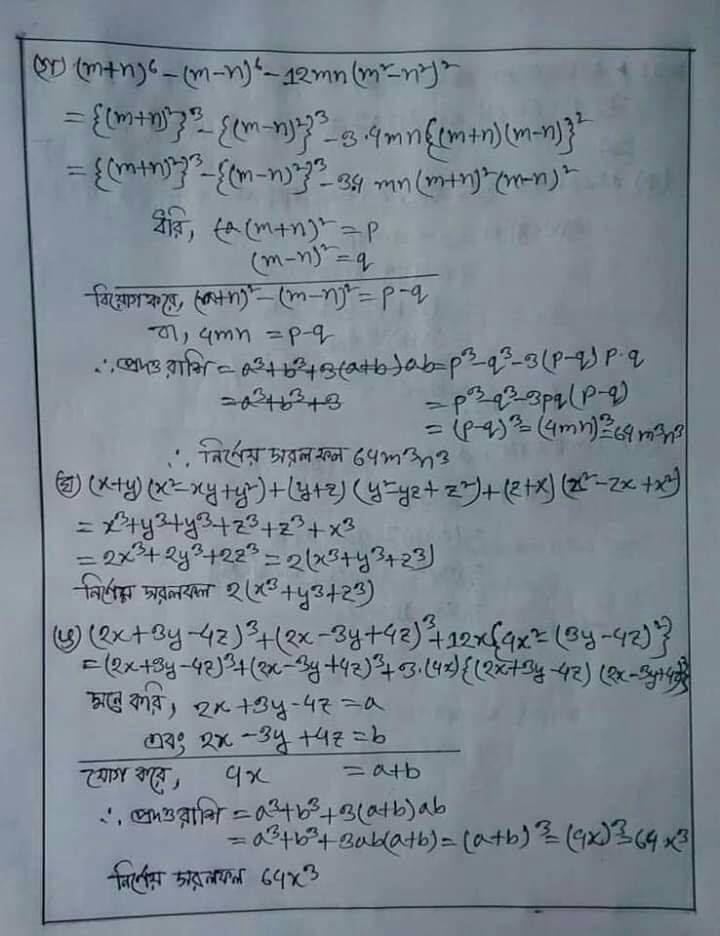 (গ) (m+n)⁶ - (m-n)⁶ - 12mn(m²-n²)²
= {(m+n)²}³ - {(m-n)²}³ - 3.4mn{(m+n)(m-n)}²
= {(m+n)²}³ - {(m-n)²}³ - 34 mn(m+n)²(m-n)²
ধরি, (m+n)² = p
(m-n)² = q
বিয়োগ করে, (m+n)² - (m-n)² = p-q
বা, 4mn = p-q
∴ প্রদত্ত রাশি = a³+b³+3(a+b)ab = p³-q³-3(p-q)p.q
= a³+b³+3 = p³-q³-3pq(p-q)
= (p-q)³ = (4mn)³ = 64m³n³
∴ নির্ণেয় সরলফল 64m³n³
(ঘ) (x+y)(x²-xy+y²)+(y+z)(y²-yz+z²)+(z+x)(z²-zx+x²)
= x³+y³+y³+z³+z³+x³
= 2x³+2y³+2z³ = 2(x³+y³+z³)
নির্ণেয় সরলফল 2(x³+y³+z³)
(ঙ) (2x+3y-4z)³+(2x-3y+4z)³+12x{4x²-(3y-4z)²}
= (2x+3y-4z)³+(2x-3y+4z)³+3.(4x){(2x+3y-4z)(2x-3y+4z)}
মনে করি, 2x+3y-4z = a
এবং 2x-3y+4z = b
যোগ করে, 4x = a+b
∴ প্রদত্ত রাশি = a³+b³+3(a+b)ab
= a³+b³+3ab(a+b) = (a+b)³ = (4x)³ = 64x³
নির্ণেয় সরলফল 64x³